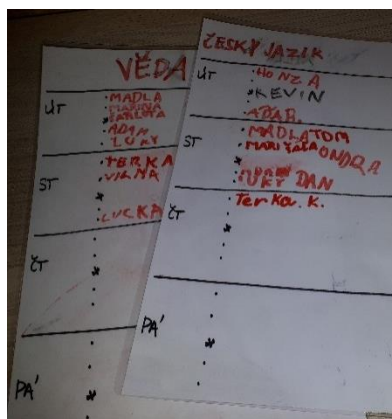 VĚDA
ÚT
MADLA
MARINA
KARLOTA
ADAM
LUKY
ST
TERKA
VILMA
LUCKA
ČT
PÁ
ČESKÝ JAZIK
ÚT
HONZA
KEVIN
ADAM
ST
MADLA TOM
ONDRA
LUKY DAN
ČT
Terka. K.
PÁ